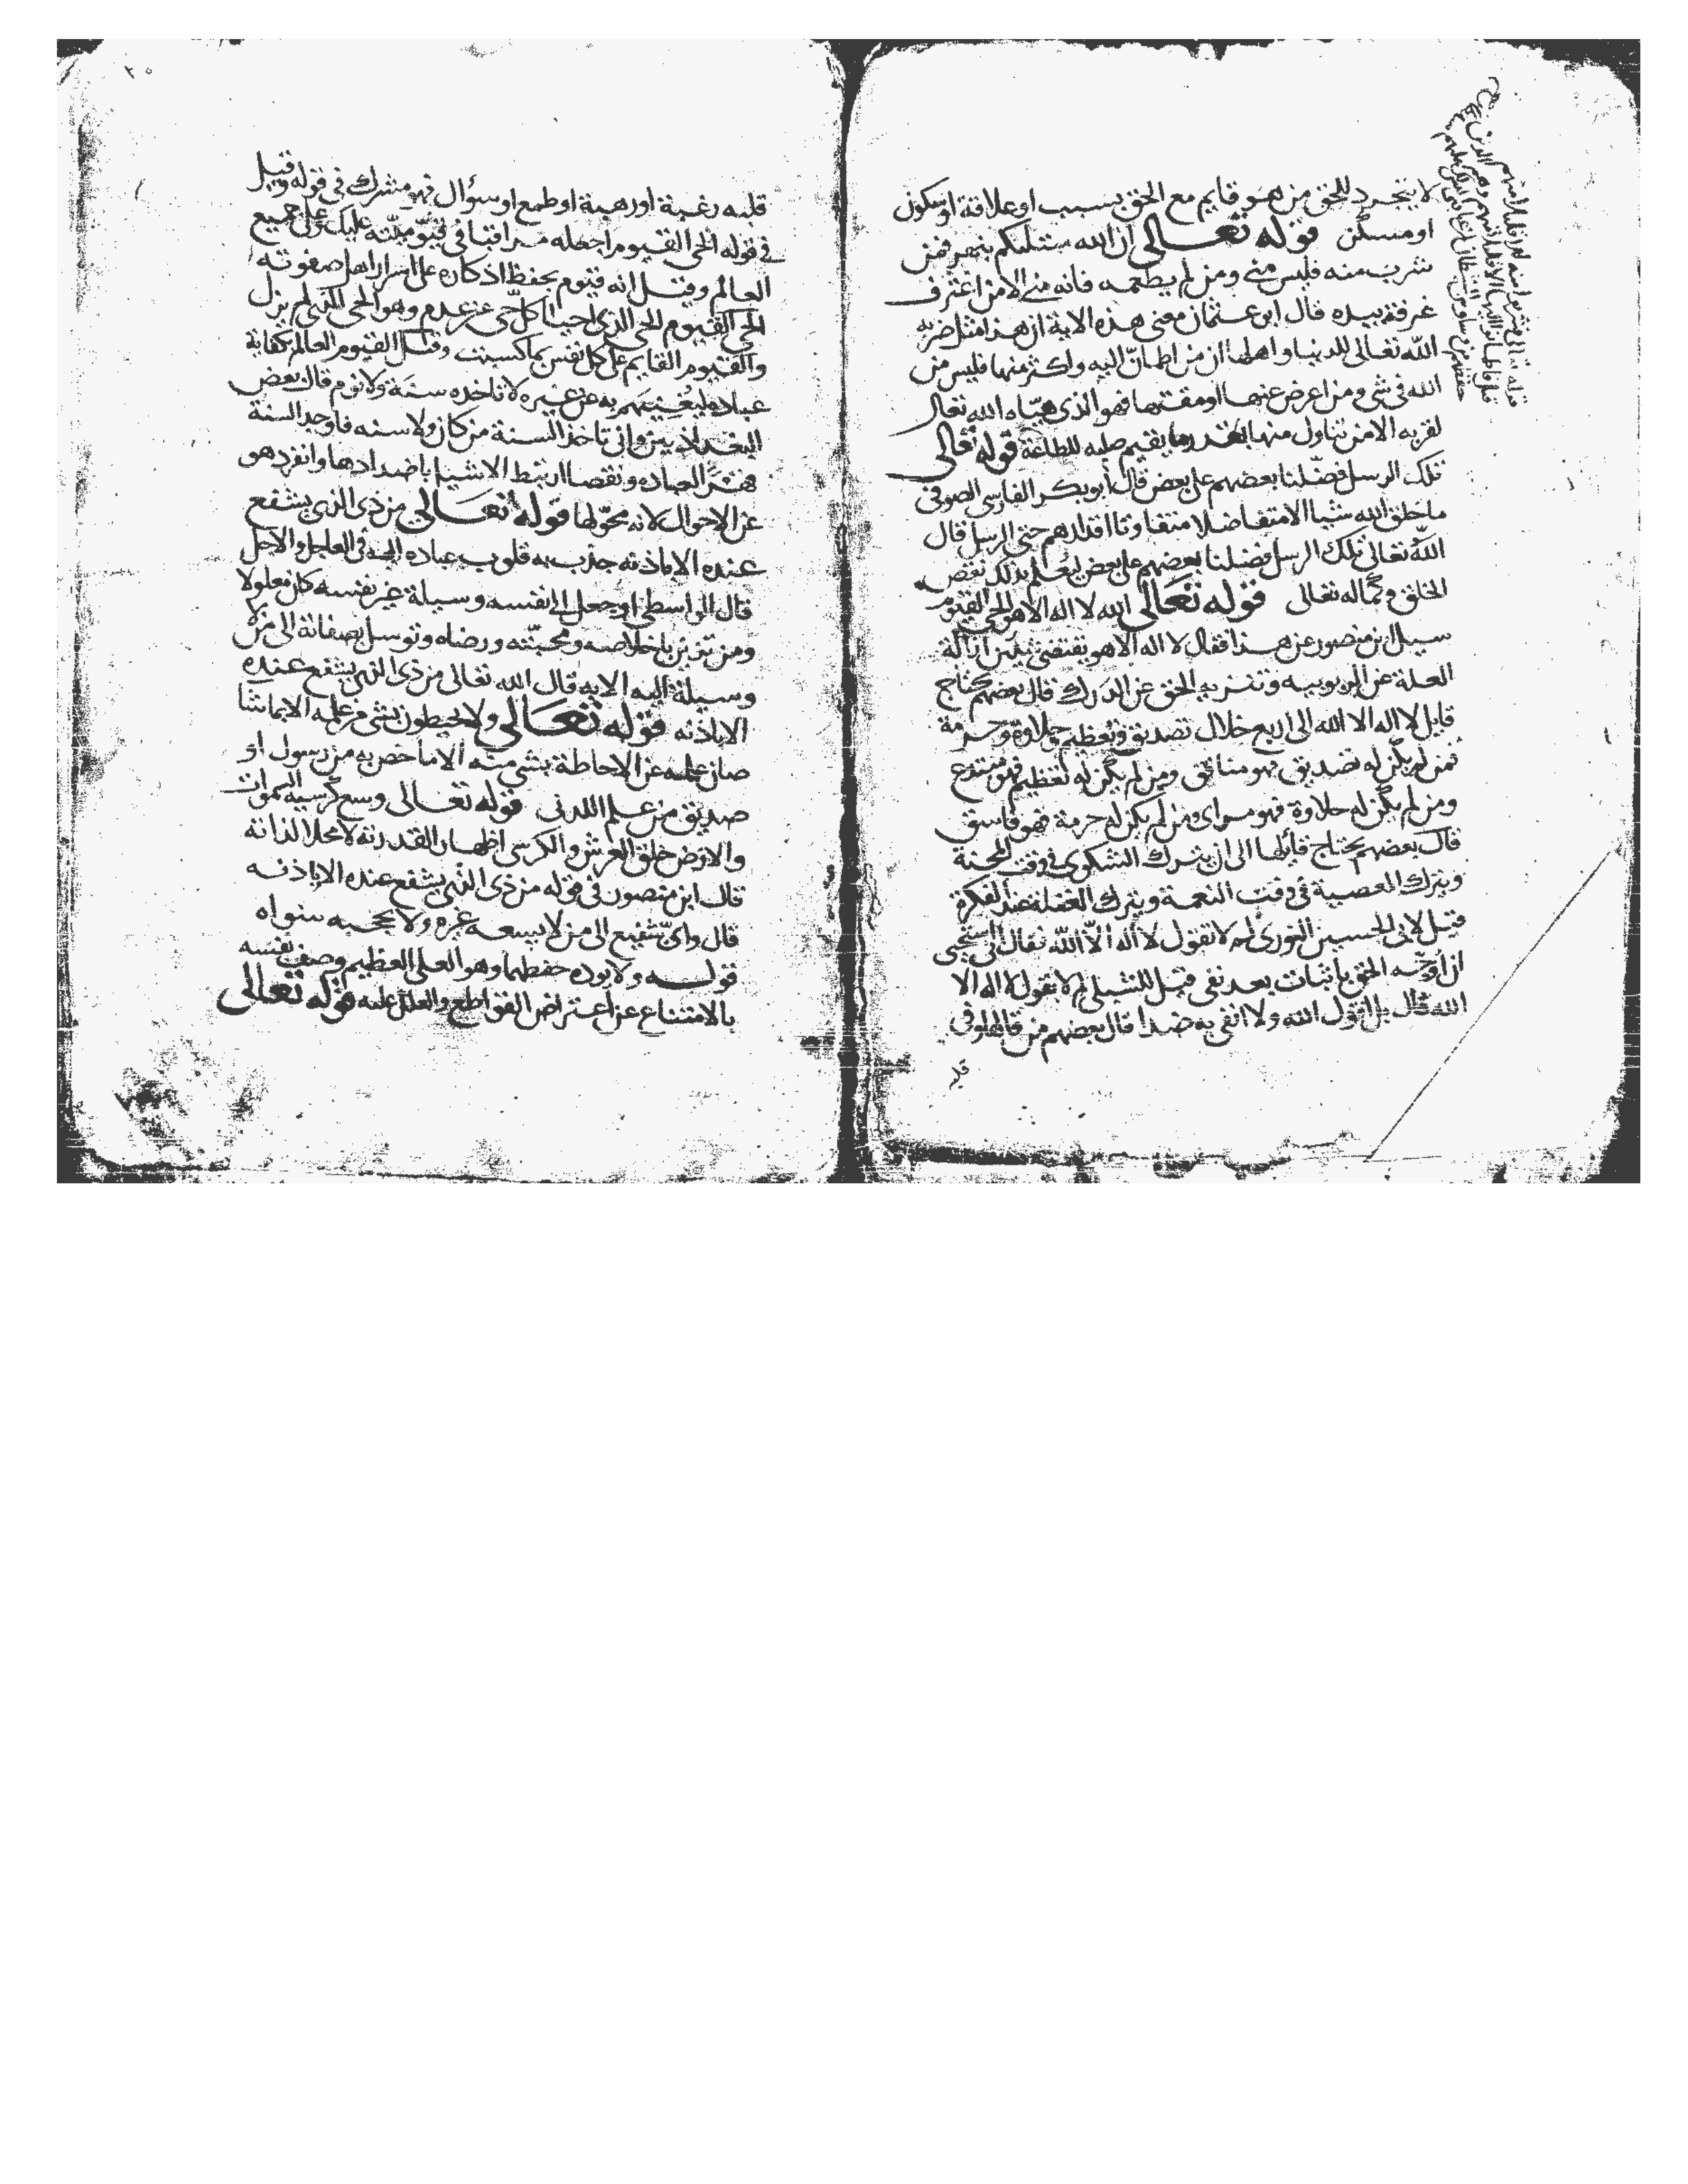 لا يتجرد للحق من هو قايم مع الحق بسبب او علاقة او سكون
او مسكن قوله تعالى ان الله مبتليكم بنهر فمن
شرب منه فليس مني ومن لم يطعمه فانه مني الا من اغترف
غرفة بيده قال ابن عثمان معنى هذه الاية ان هذا مثل ضربه
الله تعالى للدنيا واهلها ان من اطمان اليه واكثر منها فليس من
الله في شي ومن اعرض عنها او مقتها فهو الذي هياه الله تعالى
لقربه الا من تناول منها بقدر ما يقيم صلبه للطاعة قوله تعالى
تلك الرسل فضلنا بعضهم على بعض قال أبو بكر الفارسي الصوفي
ما خلق الله شيا الا متفاضلا متفاوتا اقدارهم حتى الرسل قال
الله تعالى تلك الرسل فضلنا بعضهم على بعض ليعلم بذلك نقص
الخلق وكماله تعالى قوله تعالى الله لا اله الا هو الحي القيوم
سيل ابن منصور عن هذا فقال لا اله الا هو يقتضي شيين ازالة
العلة عن الربوبيه وتنزيه الحق عن الدرك قال بعضهم يحتاج
قايل لا اله الا الله الى اربع خلال تصديق وتعظيم وحلاوة وحرمة
فمن لم يكن له تصديق فهو منافق ومن لم يكن له تعظيم فهو مبتدع
ومن لم يكن له حلاوة فهو مراى ومن لم يكن له حرمة فهو فاسق
قال بعضهم يحتاج قايلها الى ان يترك الشكوى في وقت المحنة
ويترك المعصية في وقت النعمة ويترك الغفلة عند الفكرة
قيل لابي الحسين النوري لم لا تقول لا اله الا الله فقال اني استحيي
ان اوجه الحق باثبات بعد نفي قيل للشبلي لم لا تقول لا اله الا
الله قال بل اقول الله ولا انفي به ضدا قال بعضهم من قالها وفي
قلبه رغبة او رهبة او طمع او سؤال فهو مشرك في قوله وقيل
في قوله الحي القيوم اجعله مراقبا في قيوميته عليك وعلى جميع
العالم وقيل انه قيوم بحفظ اذكاره على اسرار اهل صفوته
الحي القيوم الحي الذي احيا كل حي عن عدم وهو الحي الذي لم يزل
والقيوم القايم على كل نفس بما كسبت وقيل القيوم العالم بكفاية
عباده ليغنيهم به عن غيره لا تاخذه سنة ولا نوم قال بعض
البغداذيين وانى تاخذ السنة من كان ولا سنه فاوجد السنة
العباده ونقصا ارتبط الاشيا باضدادها وانفرد هو
عن الاحوال لانه محولها قوله تعالى من ذي الذي يشفع
عنده الا باذنه جذب به قلوب عباده اليه في العاجل والاجل
قال الواسطي او جعل الى نفسه وسيلة غير نفسه كان معلولا
ومن تزين باخلاصه ومحبته ورضاه وتوسل بصفاته الى من لا
وسيلة اليه الا به قال الله تعالى من ذي الذي يشفع عنده
الا باذنه قوله تعالى ولا يحيطون بشي من علمه الا بما شا
صان علمه عن الاحاطة بشي منه الا ما خص به من رسول او
صديق من علم اللدني قوله تعالى وسع كرسيه السموات
والارض خلق العرش والكرسي اظهار القدرته لا محلا لذاته
قال ابن منصور في قوله من ذي الذي يشفع عنده الا باذنه
قال واي شفيع الى من لا يسعه غيره ولا يحجبه سواه
قوله ولا يوده حفظهما وهو العلي العظيم وصف نفسه
بالامتناع عن اعتراض القواطع والعلل عليه قوله تعالى